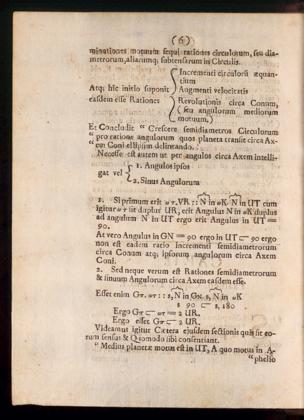 (6)
minutiones motuum sequi rationes circulorum, seu dia-
metrorum, aliarumq; subtensarum in Circulis.
Incrementi circulorũ æquan-
tium
Atq; hîc initio suponit
Augmenti velocitatis
easdem esse Rationes
Revolutionis circa Conum,
(seu angulorum mediorum
motuum.)
Et Concludit "Crescere semidiametros Circulorum
"pro ratione angulorum quos planeta transit circa Ax-
em Coni ellipsim delineando.
Necesse est autem ut per angulos circa Axem intelli-
1. Angulos ipsos
gat vel
2. Sinus Angulorum
1. Si primum erit VR :: N in oK N in UT cum
igitur sit duplus UR, erit Angulus N in oK duplus
ad angulum N in UT ergo erit Angulus in UT =
90.
At vero Angulus in GN = 90 ergo in UT 90 ergo
non est eadem ratio Incrementi semidiametrorum
circa Conum atq; ipsorum angulorum circa Axem
Coni.
2. Sed neque verum est Rationes semidiametrorum
& sinuum Angulorum circa Axem easdem esse.
Esset enim :: s, N in GN s, N in oK
s 90 s, 180
Ergo = 2 UR.
Ergo esset 2 UR.
Videamus igitur Cætera ejusdem sectionis quàm sit eo-
rum sensus & Quomodo sibi consentiant.
"Medius planetæ motus est in UT, A quo motus in A-
"phelio